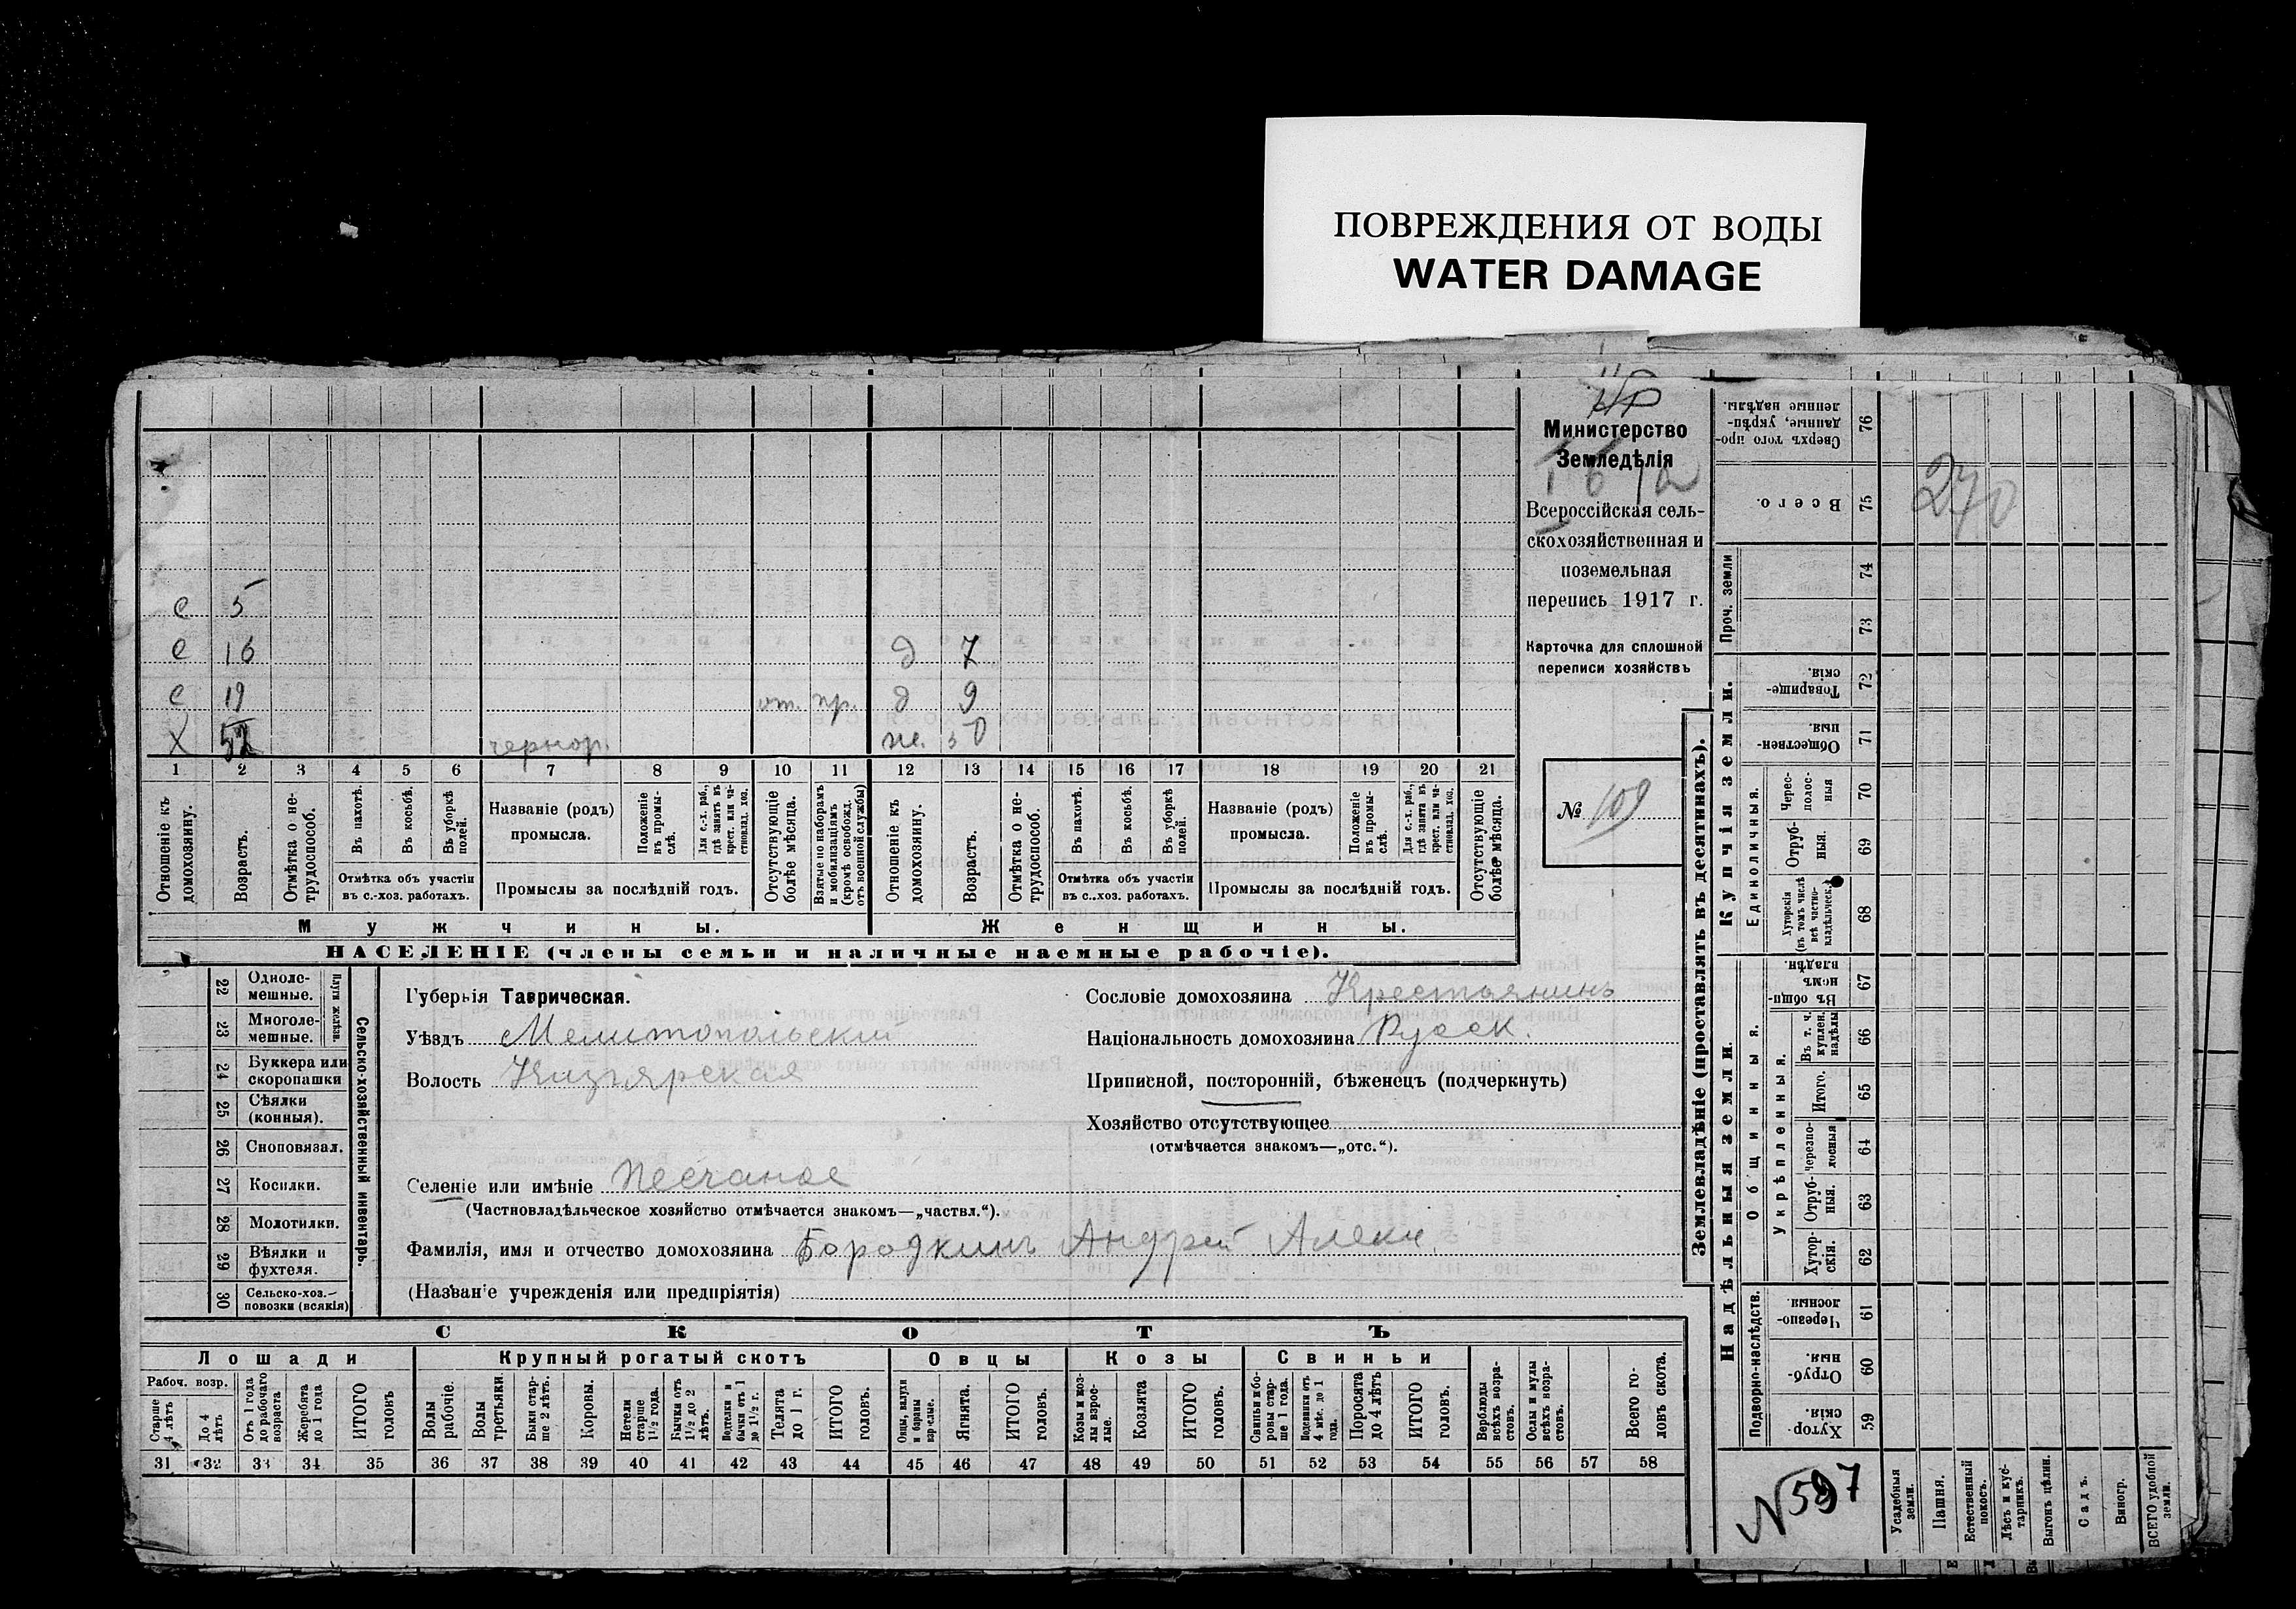 ПОВРЕЖДЕНИЯ ОТ ВОДЫ
WATER DAMAGE
Министерство
Земледѣлія
Всероссійская сель-
скохозяйственная и
поземельная
перепись 1917 г.
Карточка для сплошной
переписи хозяйствъ
№ 109
с 5
с 16 д 7
с 19 от. пр. д 9
Х 52 чернор. ж. 50
1 2 3 4 5 6 7 8 9 10 11 12 13 14 15 16 17 18 19 20 21
Отношеніе къ домохозяину.
Возрастъ.
Отмѣтка о не-трудоспособ.
Въ пахотѣ.
Въ косьбѣ.
Въ уборкѣ полей.
Отмѣтка объ участіи
въ с.-хоз. работахъ.
Названіе (родъ)
промысла.
Положеніе въ промы-слѣ.
Для с.-х. раб., гдѣ занятъ въ крест. или ча-стновлад. хоз.
Промыслы за послѣдній годъ.
Отсутствующіе болѣе мѣсяца.
Взятые по наборамъ и мобилизаціямъ (кромѣ освобожд. отъ военной службы)
Отношеніе къ домохозяину.
Возрастъ.
Отмѣтка о не-трудоспособ.
Въ пахотѣ.
Въ косьбѣ.
Въ уборкѣ полей.
Отмѣтка объ участіи
въ с.-хоз. работахъ.
Названіе (родъ)
промысла.
Положеніе въ промы-слѣ.
Для с.-х. раб., гдѣ занята въ крест. или ча-стновлад. хоз.
Промыслы за послѣдній годъ.
Отсутствующіе болѣе мѣсяца.
Мужчины. Женщины.
НАСЕЛЕНІЕ (члены семьи и наличные наемные рабочіе).
22 Одноле-мешные.
23 Многоле-мешные.
Плуги желѣзн.
24 Буккера или скоропашки
25 Сѣялки (конныя).
26 Сноповязал.
27 Косилки.
28 Молотилки.
29 Вѣялки и фухтеля.
30 Сельско-хоз. повозки (всякія)
Сельско-хозяйственный инвентарь.
Губернія Таврическая.
Уѣздъ Мелитопольскій
Волость Кизъярская
Селеніе или имѣніе Песчаное
(Частновладѣльческое хозяйство отмѣчается знакомъ—„частвл.“).
Фамилія, имя и отчество домохозяина Бородкинъ Андрей Алекс.
(Названіе учрежденія или предпріятія)
Сословіе домохозяина Крестьянинъ
Національность домохозяина Русск.
Приписной, посторонній, бѣженецъ (подчеркнуть)
Хозяйство отсутствующее
(отмѣчается знакомъ—„отс.“).
СКОТЪ
Лошади Крупный рогатый скотъ Овцы Козы Свиньи
Рабоч. возр.
Старше 4 лѣтъ
До 4 лѣтъ
Отъ 1 года до рабочаго возраста
Жеребята до 1 года
ИТОГО головъ
Волы рабочіе.
Волы третьяки.
Быки стар-ше 2 лѣтъ.
Коровы.
Нетели старше 1½ года.
Бычки отъ 1½ до 2 лѣтъ.
Подтелки и бычки отъ 1 до 1½ г.
Телята до 1 г.
ИТОГО головъ.
Овцы, валухи и бараны взрослые.
Ягнята.
ИТОГО головъ.
Козы и коз-лы взрос-лые.
Козлята
ИТОГО головъ.
Свиньи и бо-ровы стар-ше 1 года.
Подсвинки отъ 4 мѣс. до 1 года.
Поросята до 4 лѣтъ
ИТОГО головъ.
Верблюды всѣхъ возра-стовъ.
Ослы и мулы всѣхъ возра-стовъ.
Всего го-ловъ скота.
31 32 33 34 35 36 37 38 39 40 41 42 43 44 45 46 47 48 49 50 51 52 53 54 55 56 57 58
Землевладѣніе (проставлять въ десятинахъ).
Надѣльныя земли. Купчія земли. Проч. земли
Подворно-наслѣдств.
Общинныя.
Укрѣпленныя.
Единоличныя.
76 Сверхъ того про-данные, укрѣп-ленные надѣлы.
75 Всего. 270
74
73
72 Товарище-скія.
71 Обществен-ныя.
70 Черес-полос-ныя
69 Отруб-ныя.
68 Хуторскія (въ томъ числѣ всѣ частно-владѣльческ.)
67 Въ общин-номъ владѣн.
66 Въ т. ч. куплен. надѣлы
65 Итого.
64 Черезпо-лосныя
63 Отруб-ныя.
62 Хутор-скія.
61 Черезпо-лосныя.
60 Отруб-ныя.
59 Хутор-скія.
N 597
Усадебныя земли.
Пашня.
Естественный покосъ.
Лѣсъ и кус-тарникъ.
Выгонъ цѣлин.
Садъ.
Виногр.
ВСЕГО удобной земли.